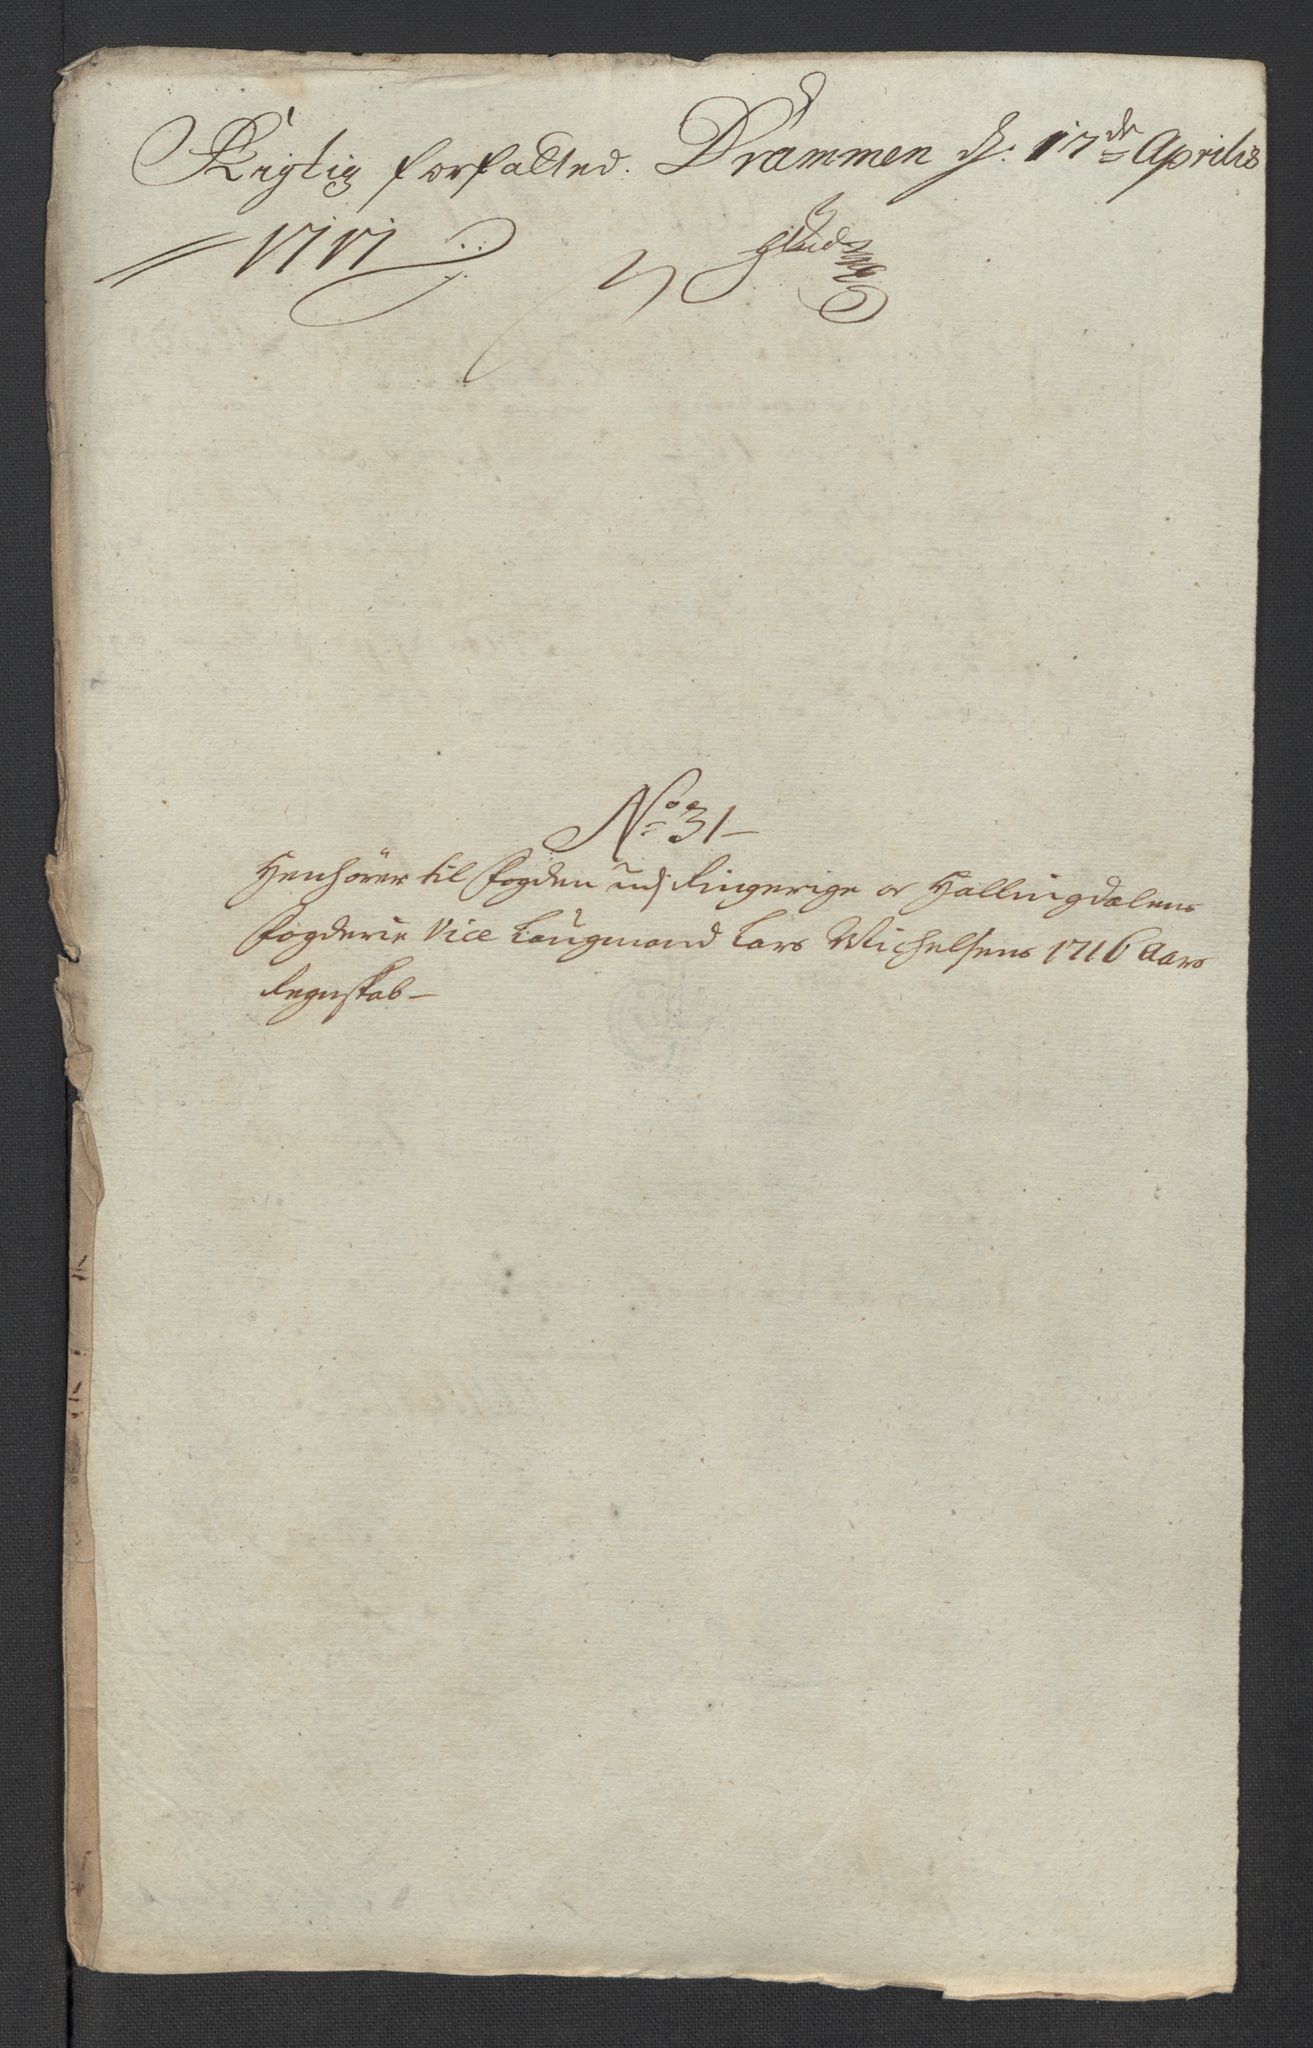 Rigtig forfatted. Drammen d: 17de Aprilis
1717
No 31
Henhörer til Fogden udj Ringerige oc Hallingdalens
Fogderie Vice Laugmand Lars Michelsens 1716 Aars
Regnskab